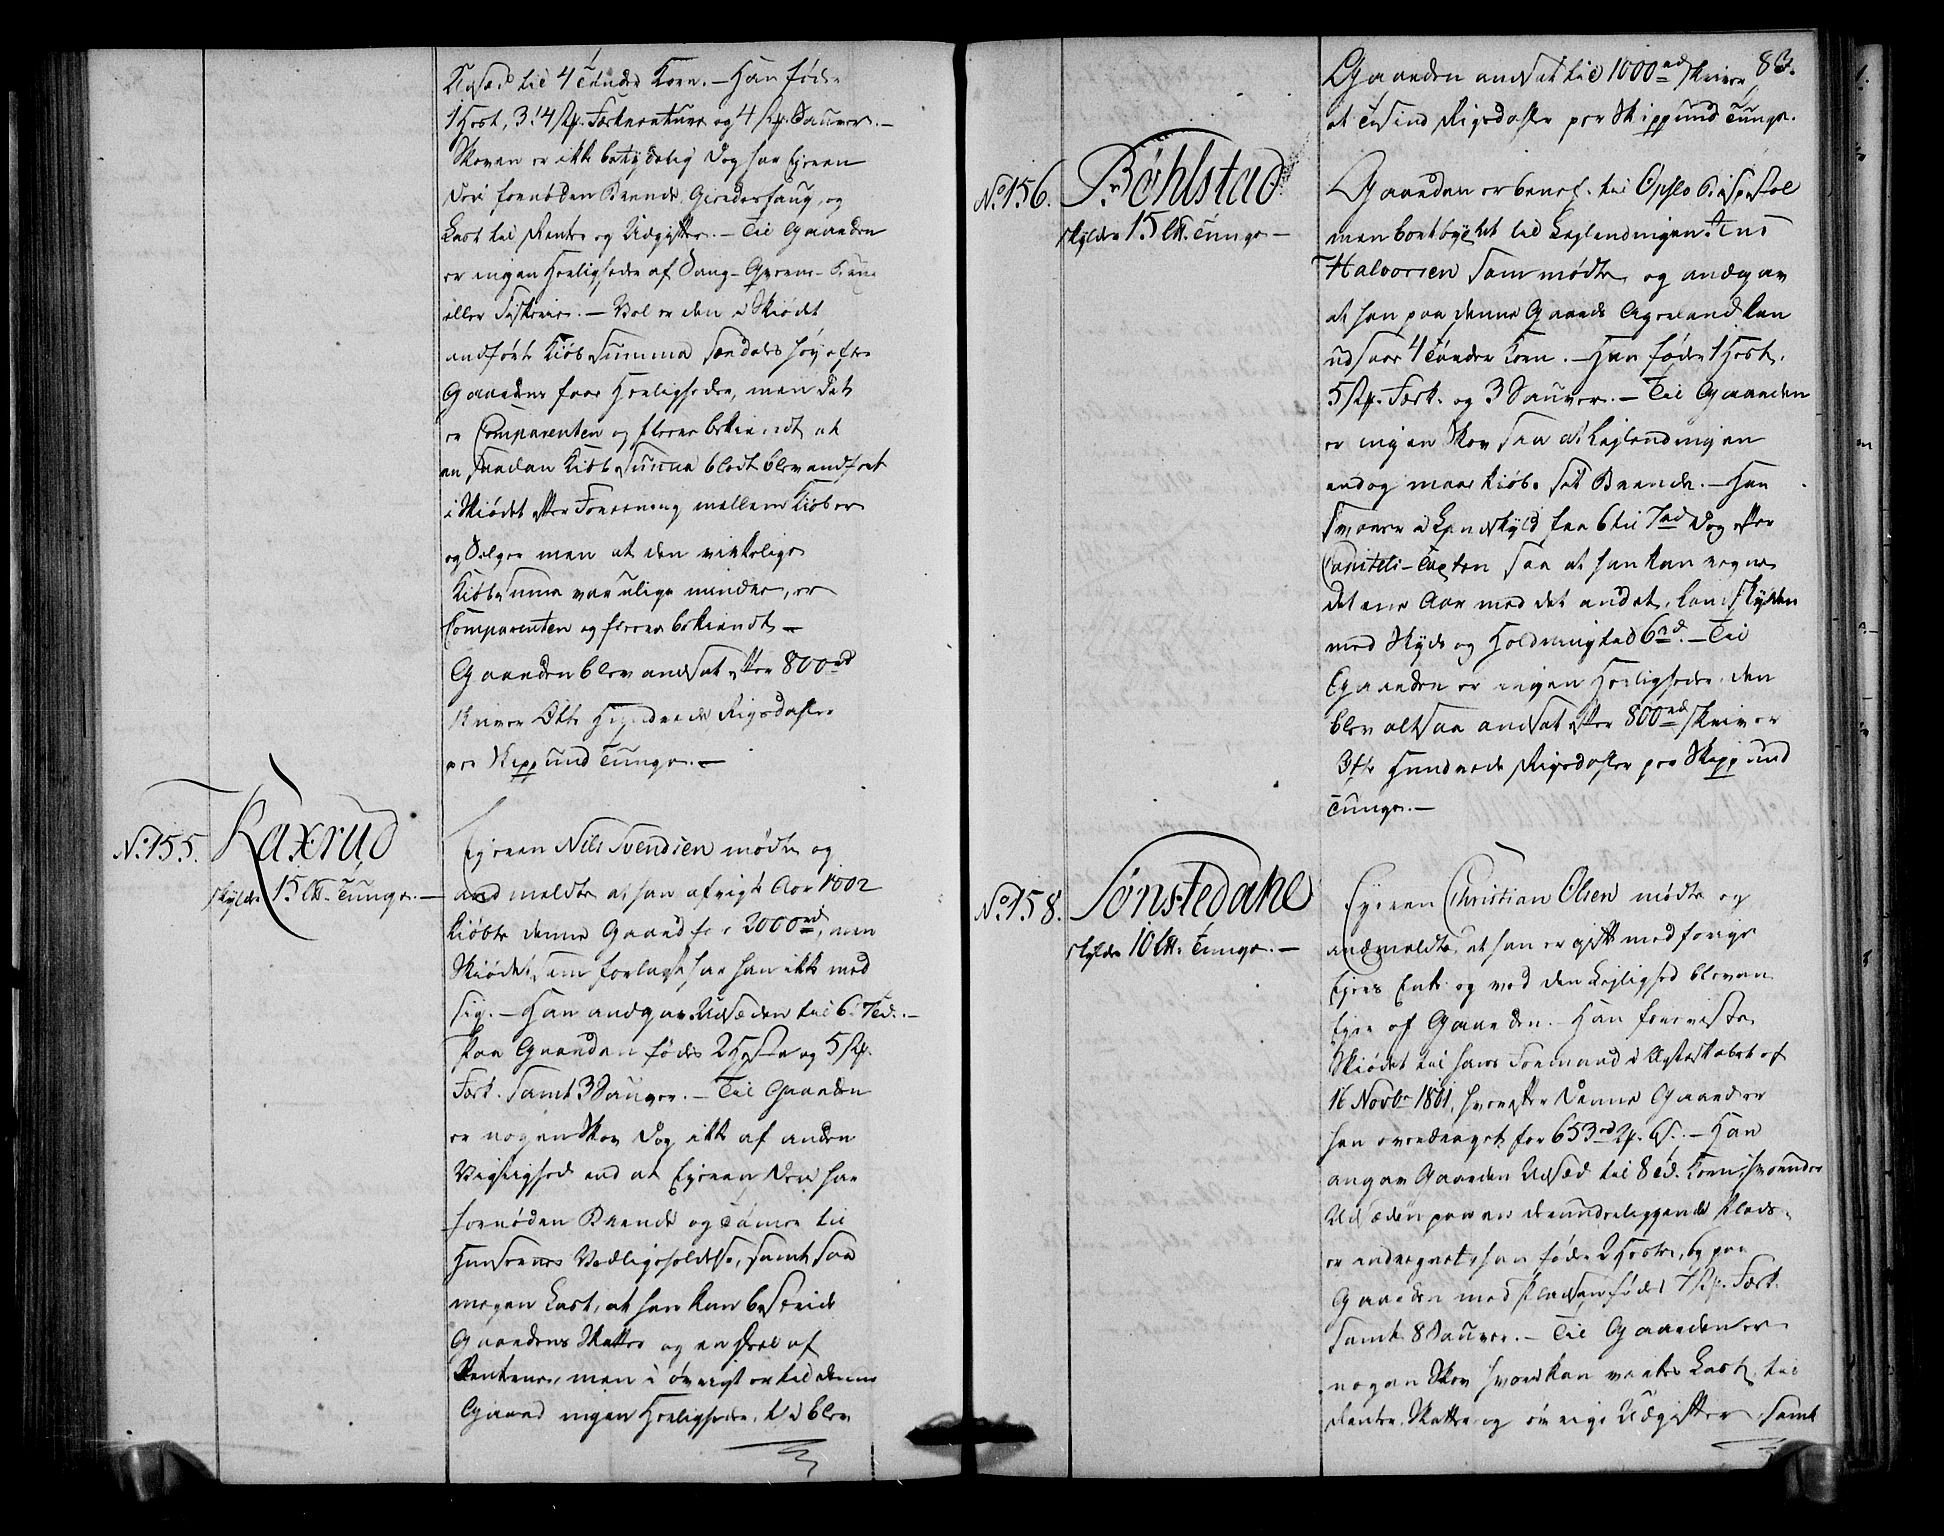 til 4 Tønder Korn. – Han føder
1 Hest, 3 à 4 Stk. og 4 Stk. Sauer. –
Skoven er ikke betydelig dog har Ejeren
deri fornøden Brænde, Gierdesfang, og
Last til Renter og Udgifter. – Til Gaarden
er ingen Herligheder af Saug- Qværne-
eller Fiskerie. – Vel er den i Skiødet
andførte Kiøbesumma særdeles høy efter
Gaardens faae Herligheder, men det
er Comparenten og fleere bekiendt at
en saadan Kiøbesumma blodt blev andført
i Skiødet efter Foreening mellem Kiøber
og Sælger men at den virkelige
Kiøbesumma var ulige mindre, er
Comparenten og fleere bekiendt –
Gaarden blev andsat efter 800 rd
skriver Otte Hundrede Rigsdaler
per Skippund Tunge. –
No. 155. Kaxrud
skylder 15 Lt. Tunge. –
Ejeren Nils Svendsen mødte og
andmeldte at han afvigte Aar 1802
kiøbte denne Gaard for 2000 rd, men
Skiødet, som forlagt, har han ikke med
sig. – Han andgav Udsæden til 6 à 7 Td. –
Paa Gaarden fødes 2 Heste og 5 Stk.
Fæ samt 3 Sauer. – Til Gaarden
er nogen Skov dog ikke af anden
Vigtighed end at Ejeren deri har
fornøden Brænde og Tømmer til
Husenes Vedligeholdelse, samt saa
megen Last, at han kan bestride
Gaardens Skatter og en Deel af
Renterne, men i øvrigt er til denne
Gaard ingen Herligheder, til blev
83.
Gaarden andsat til 1000 rd skriver
et Tusind Rigsdaler per Skippund Tunge.
No. 156. Bøhlstad
skylder 15 Lt. Tunge –
Gaarden er benef. til Opslo Bispestol
men bortbygslet til Leylendingen
Halvorsen som mødte og andgav
at han paa denne Gaards Agerland kan
udsaae 4 Tønder Korn. – Han føder 1 Hest,
5 Stk. Fæ og 3 Sauer. – Til Gaarden
er ingen Skov saa at Leylendingen
endog maae kiøbe sit Brænde. – Han
svarer i Landskyld fra 6 til 7 rd dog efter
Capitels-Taxten saa at han kan regne
det ene Aar med det andet, Landskylden
med Skyds og Holdning til 6 rd. – Til
Gaarden er ingen Herligheder, den
blev altsaa andsat efter 800 rd skriver
Otte Hundrede Rigsdaler per Skippund
Tunge. –
No. 158. Sønstedahl
skylder 10 Lt. Tunge. –
Ejeren Christian Olsen mødte og
andmeldte, at han er gift med forrige
Ejers Enke og ved den Lejlighed bleven
Ejer af Gaarden. – Han foreviste
Skiødet til hans Formand i Ægteskabet af
16 Novbr 1801, hvorefter denne Gaard er
ham overdraget for 653 rd 2 – Han
angav Gaarden Udsæd til 8 Td. Korn, hvorunder
Udsæden paa en derunderliggende Plads
er indregnet, han føder 2 Heste, og paa
Gaarden med Pladsen fødes 7 Stk. Fæ
samt 8 Sauer. – Til Gaarden er
nogen Skov hvoraf kan ventes Last til
Renter, Skatter og øvrige Udgifter, samt